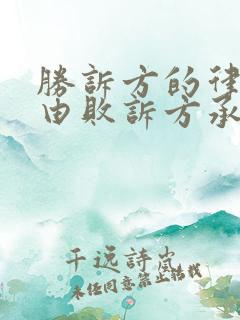 勝訴方的律
由敗訴方承
千远詩出
未经同意禁止转载